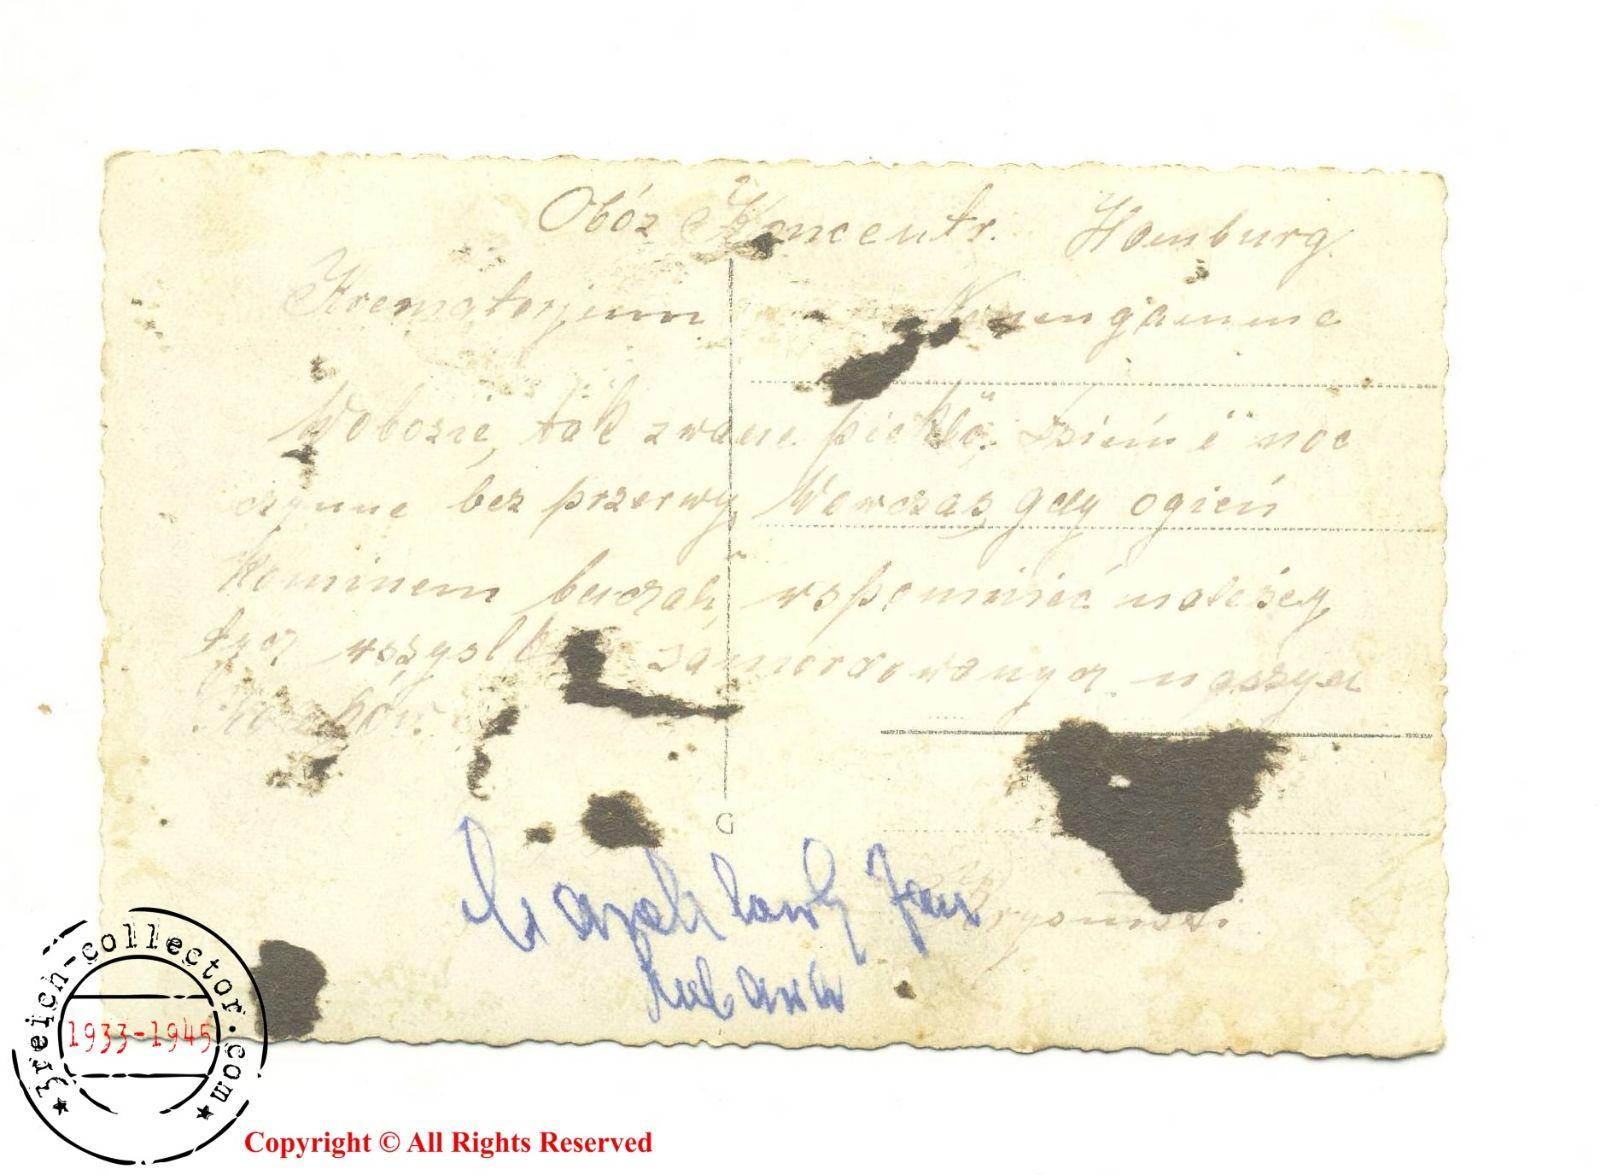 Obóz Koncentr. Hamburg
Krematorjum Neuengamme
Wobozie, tak zwane piekło. Dzień i noc
czynne bez przerwy, Wewczas gdy ogień
Kominem buchał, wspomnieć należy
tyz zamordowanych naszych
Jan
G
3reich-collector.com
1933-1945
Copyright © All Rights Reserved